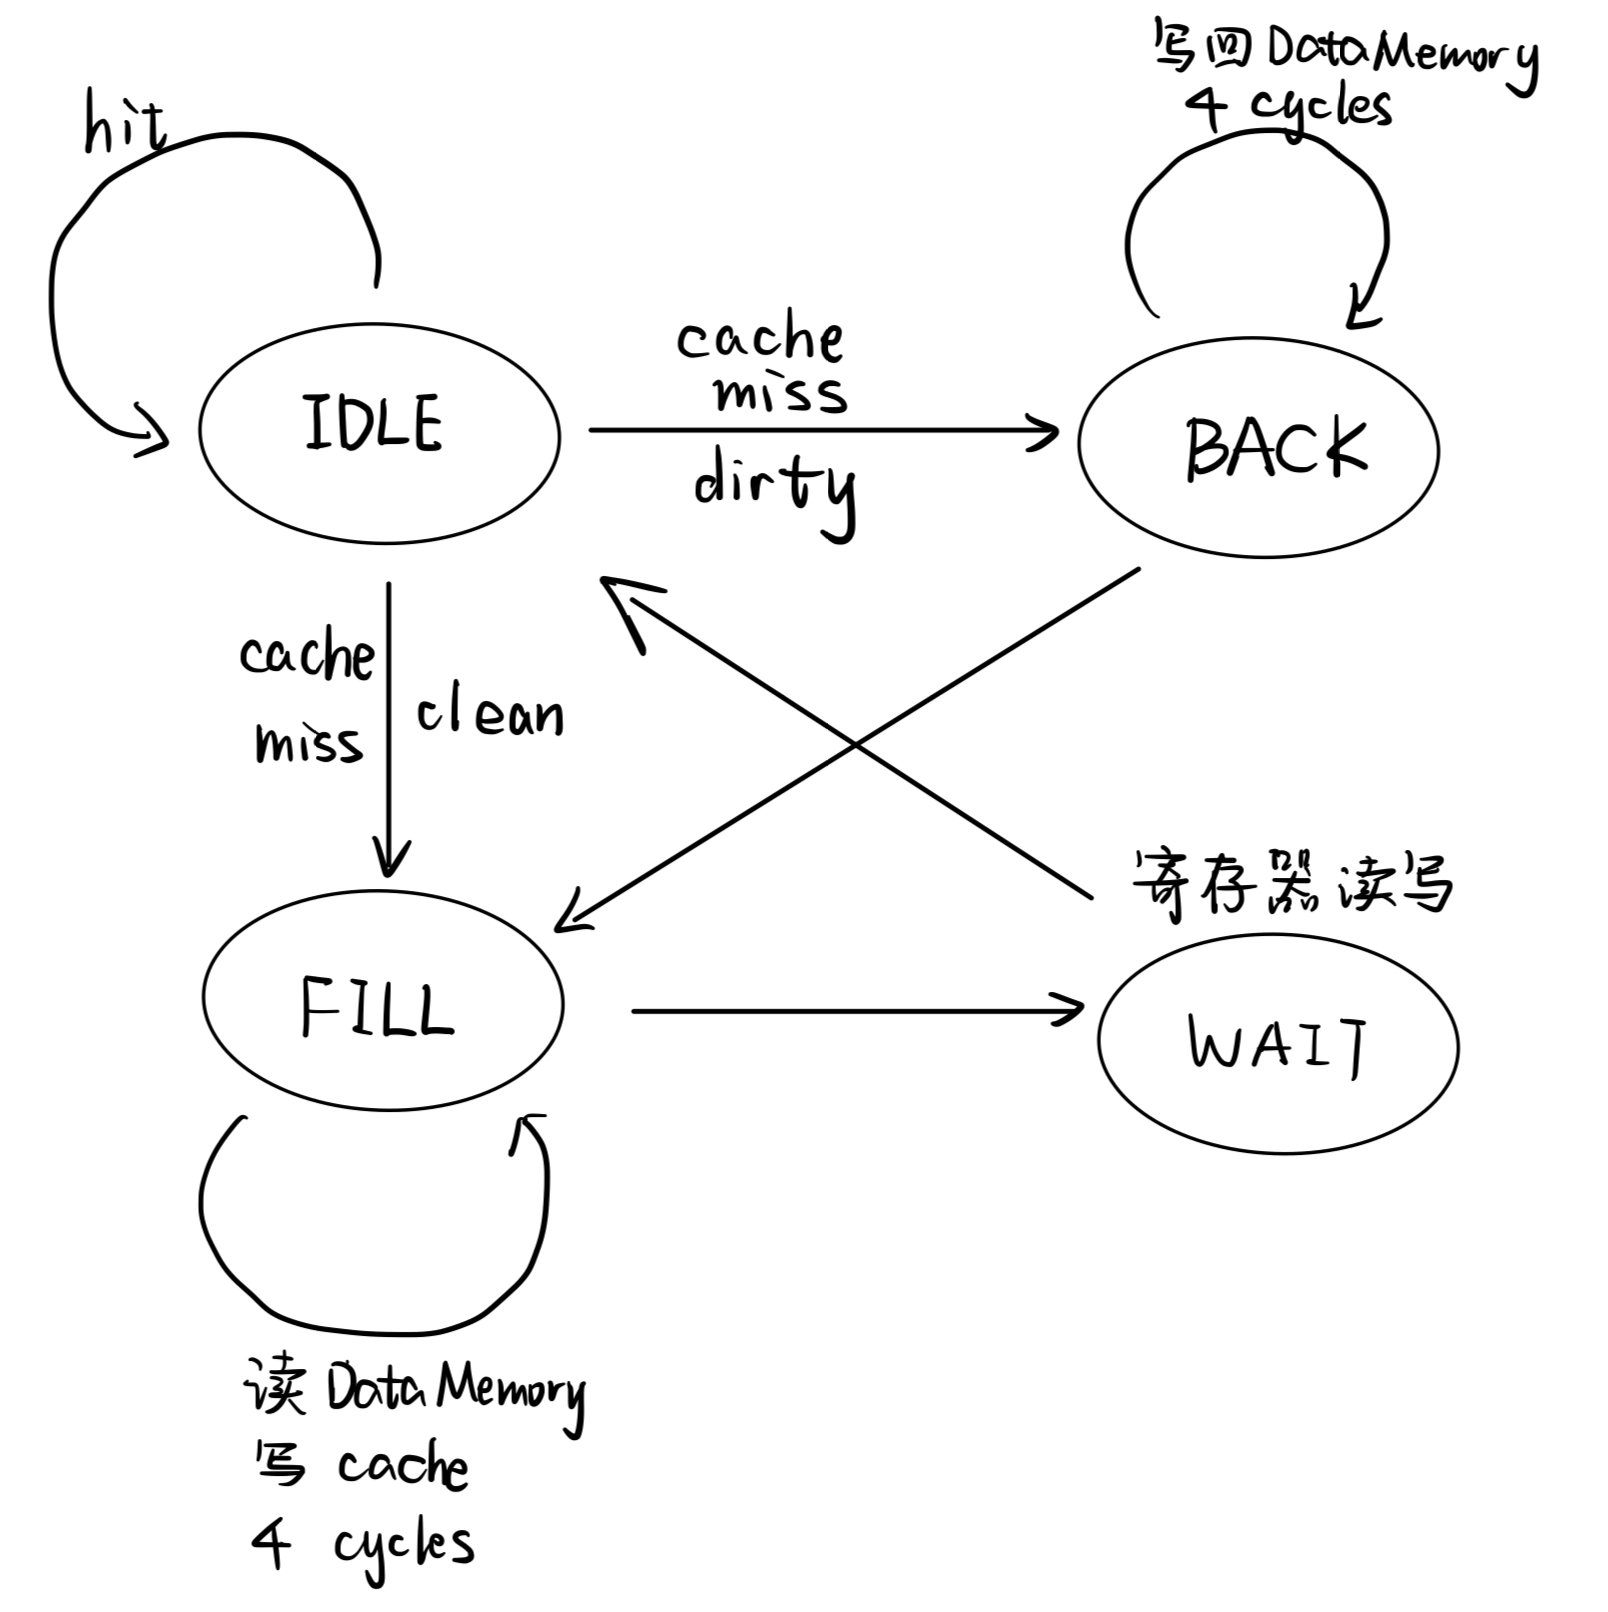 hit
写回 DataMemory
4 cycles
IDLE
cache
miss
dirty
BACK
cache
miss
clean
寄存器读写
FILL
WAIT
读 DataMemory
写 cache
4 cycles